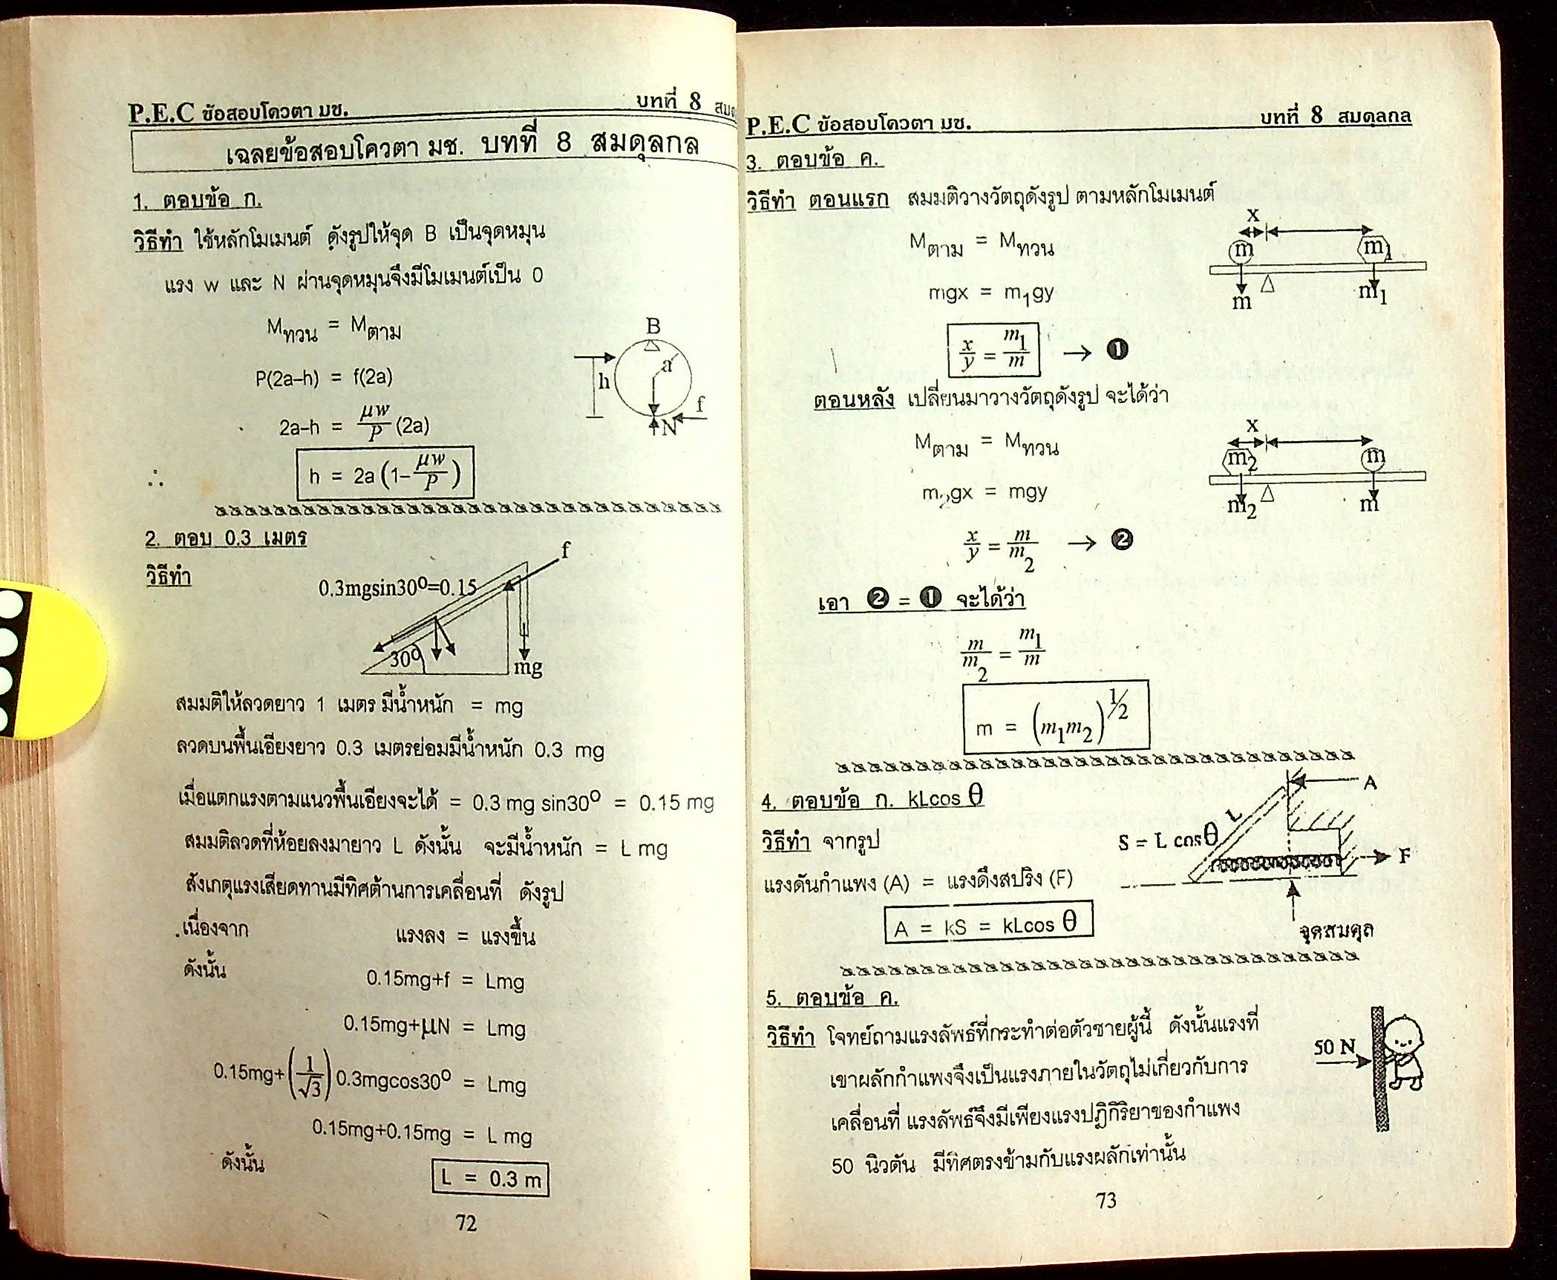 P.E.C ข้อสอบโควตา มช. บทที่ 8
เฉลยข้อสอบโควตา มช. บทที่ 8 สมดุลกล
1. ตอบข้อ ก.
วิธีทำ ใช้หลักโมเมนต์ ดังรูปให้จุด B เป็นจุดหมุน
แรง w และ N ผ่านจุดหมุนจึงมีโมเมนต์เป็น 0
Mทวน = Mตาม
P(2a–h) = f(2a)
2a–h = μw/P (2a)
∴ h = 2a(1–μw/P)
B
a
h
f
N
2. ตอบ 0.3 เมตร
วิธีทำ
0.3mgsin30º=0.15
f
30º
mg
สมมติให้ลวดยาว 1 เมตร มีน้ำหนัก = mg
ลวดบนพื้นเอียงยาว 0.3 เมตรย่อมมีน้ำหนัก 0.3 mg
เมื่อแตกแรงตามแนวพื้นเอียงจะได้ = 0.3 mg sin30º = 0.15 mg
สมมติลวดที่ห้อยลงมายาว L ดังนั้น จะมีน้ำหนัก = L mg
สังเกตุแรงเสียดทานมีทิศต้านการเคลื่อนที่ ดังรูป
เนื่องจาก แรงลง = แรงขึ้น
ดังนั้น 0.15mg+f = Lmg
0.15mg+μN = Lmg
0.15mg+(1/√3)0.3mgcos30º = Lmg
0.15mg+0.15mg = L mg
ดังนั้น L = 0.3 m
72
P.E.C ข้อสอบโควตา มช. บทที่ 8 สมดุลกล
3. ตอบข้อ ค.
วิธีทำ ตอนแรก สมมติวางวัตถุดังรูป ตามหลักโมเมนต์
Mตาม = Mทวน
mgx = m₁gy
x/y = m₁/m → ❶
x
m m₁
m m₁
ตอนหลัง เปลี่ยนมาวางวัตถุดังรูป จะได้ว่า
Mตาม = Mทวน
m₂gx = mgy
x/y = m/m₂ → ❷
x
m₂ m
m₂ m
เอา ❷ = ❶ จะได้ว่า
m/m₂ = m₁/m
m = (m₁m₂)^½
4. ตอบข้อ ก. kLcos θ
วิธีทำ จากรูป
แรงดันกำแพง (A) = แรงดึงสปริง (F)
A = kS = kLcos θ
A
L
S = L cosθ
F
จุดสมดุล
5. ตอบข้อ ค.
วิธีทำ โจทย์ถามแรงลัพธ์ที่กระทำต่อตัวชายผู้นี้ ดังนั้นแรงที่
เขาผลักกำแพงจึงเป็นแรงภายในวัตถุไม่เกี่ยวกับการ
เคลื่อนที่ แรงลัพธ์จึงมีเพียงแรงปฏิกิริยาของกำแพง
50 นิวตัน มีทิศตรงข้ามกับแรงผลักเท่านั้น
50 N
73